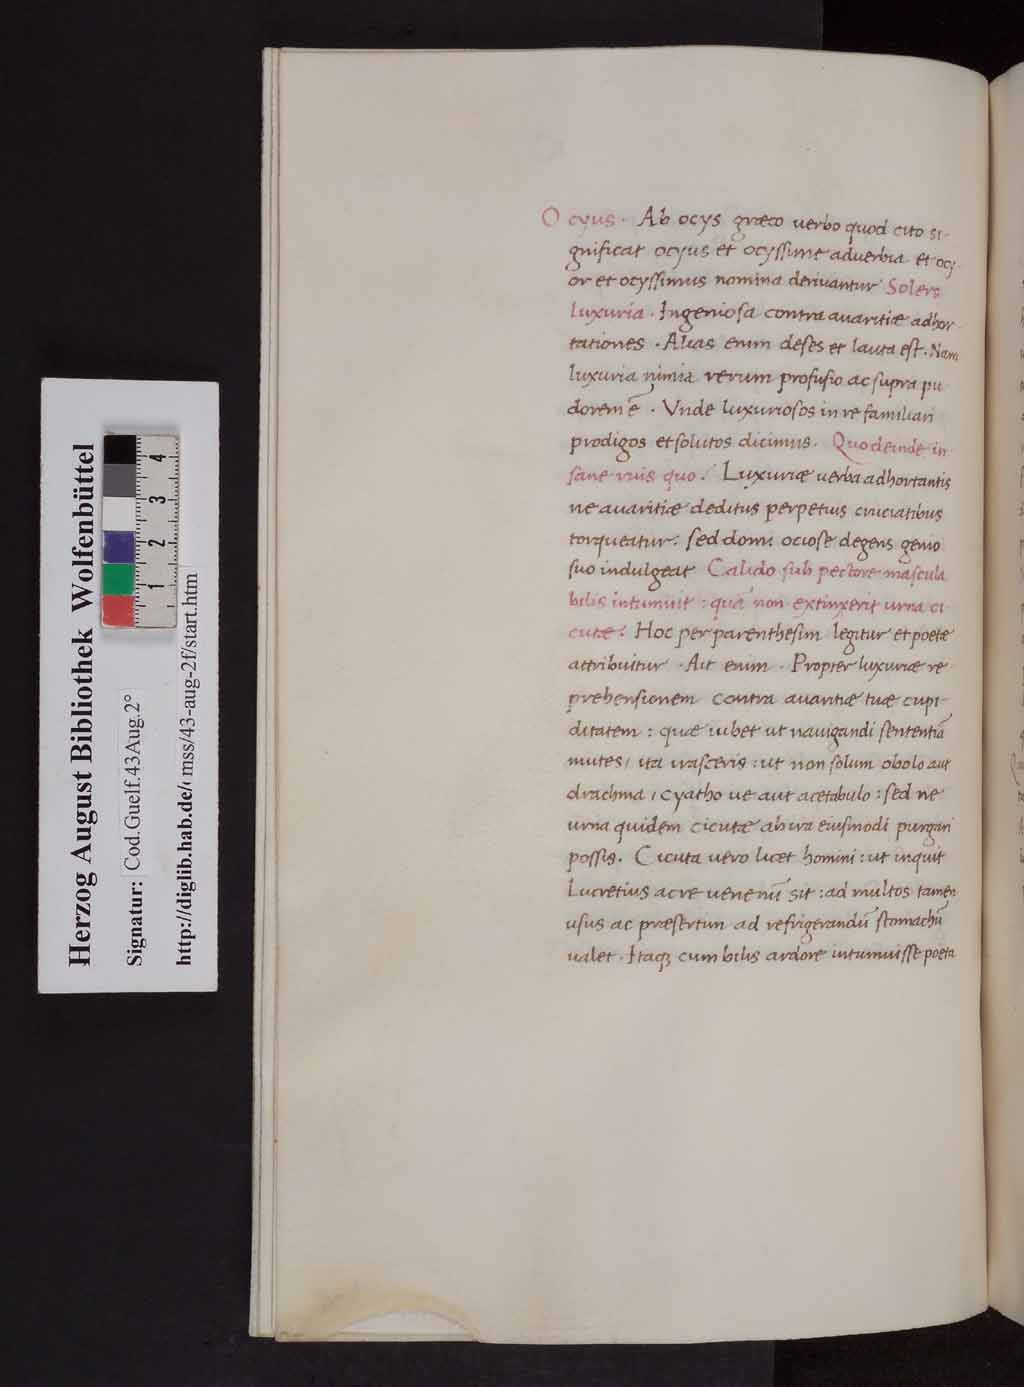 Herzog August Bibliothek Wolfenbüttel
Signatur: Cod.Guelf.43Aug.2°
http://diglib.hab.de/ mss/43-aug-2f/start.htm
1 2 3 4
O cyus · Ab ocys græco verbo quod cito si-
gnificat ocyus et ocyssime aduerbia et ocy-
or et ocyssimus nomina deriuantur Solers
luxuria · Ingeniosa contra auaritiæ adhor-
tationes · Alias enim deses et lauta est · Nam
luxuria nimia rerum profusio ac supra pu
dorem ē · Vnde luxuriosos in re familiari
prodigos et solutos dicimus · Quo deinde in
sane ruis quo? Luxuriæ uerba adhortantis
ne auaritiæ deditus perpetuis cruciatibus
torqueatur: sed domi ociose degens genio
suo indulgeat Calido sub pectore mascula
bilis intumuit: quā non extinxerit urna ci
cutæ? Hoc per parenthesim legitur et poetæ
attribuitur · Ait enim · Propter luxuriæ re-
prehensionem contra auaritiæ tuæ cupi-
ditatem: quæ iubet ut nauigandi sententiā
mutes, ita irasceris: ut non solum obolo aut
drachma, cyatho ue aut acetabulo: sed ne
urna quidem cicutæ ab ira eiusmodi purgari
possis. Cicuta uero licet homini: ut inquit
Lucretius acre uenenū sit: ad multos tamen
usus ac præsertim ad refrigerandū stomachū
ualet · Itaqꝫ cum bilis ardore intumuisse poeta